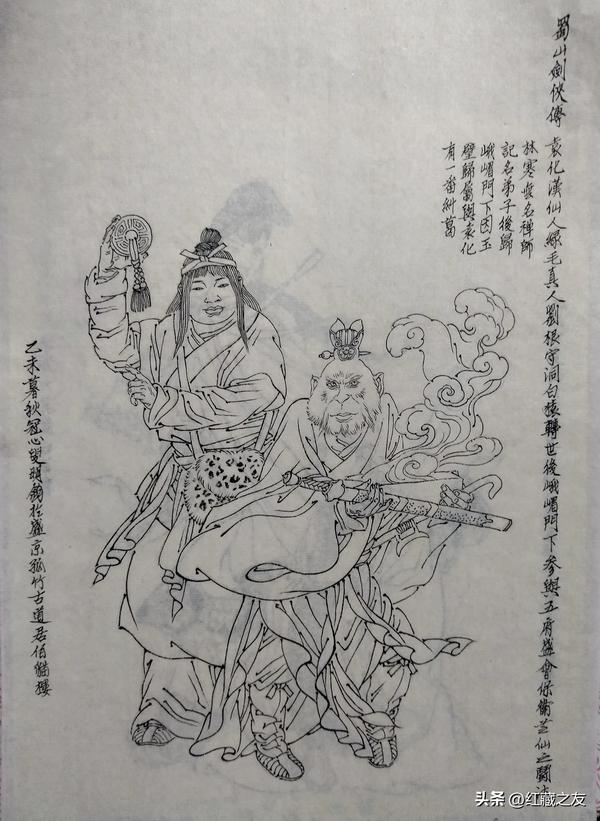 蜀山劍俠傳
袁化漢仙人綠毛真人劉根守洞白猿轉世後峨嵋門下參與五府盛會保衛芝仙之鬪法
林寒無名禪師
記名弟子後歸
峨嵋門下因玉
璧歸屬與袁化
有一番糾葛
乙未暮秋冠心叟於盛京孤竹古道居佰貓樓
头条 @红藏之友